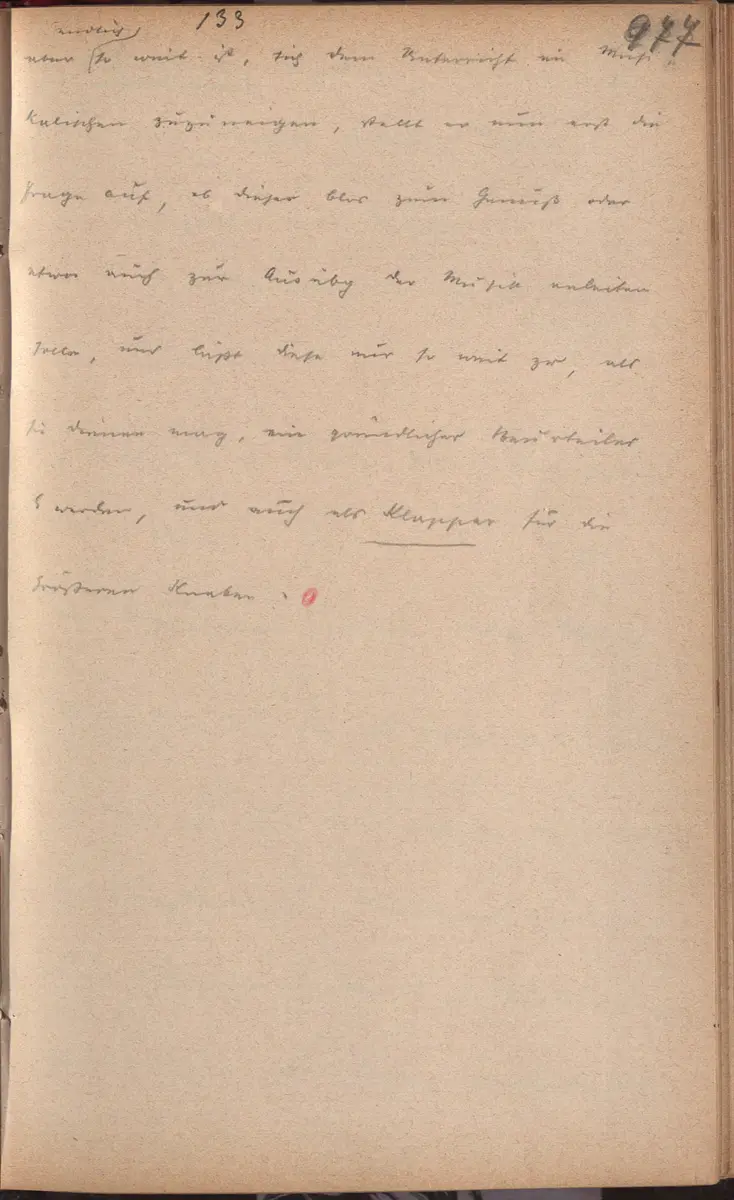 133
977
endlich
aber so weit ist, sich dem Unterricht im Musi-
kalischen zuzuneigen, stellt er nun erst die
Frage auf, ob dieser blos zum Genuß oder
etwa auch zur Ausübg der Musik anleiten
solle, und läßt diese nur so weit zu, als
sie dienen mag, ein gründlicher Beurteiler
z werden, und auch als Klapper für die
größeren Knaben.